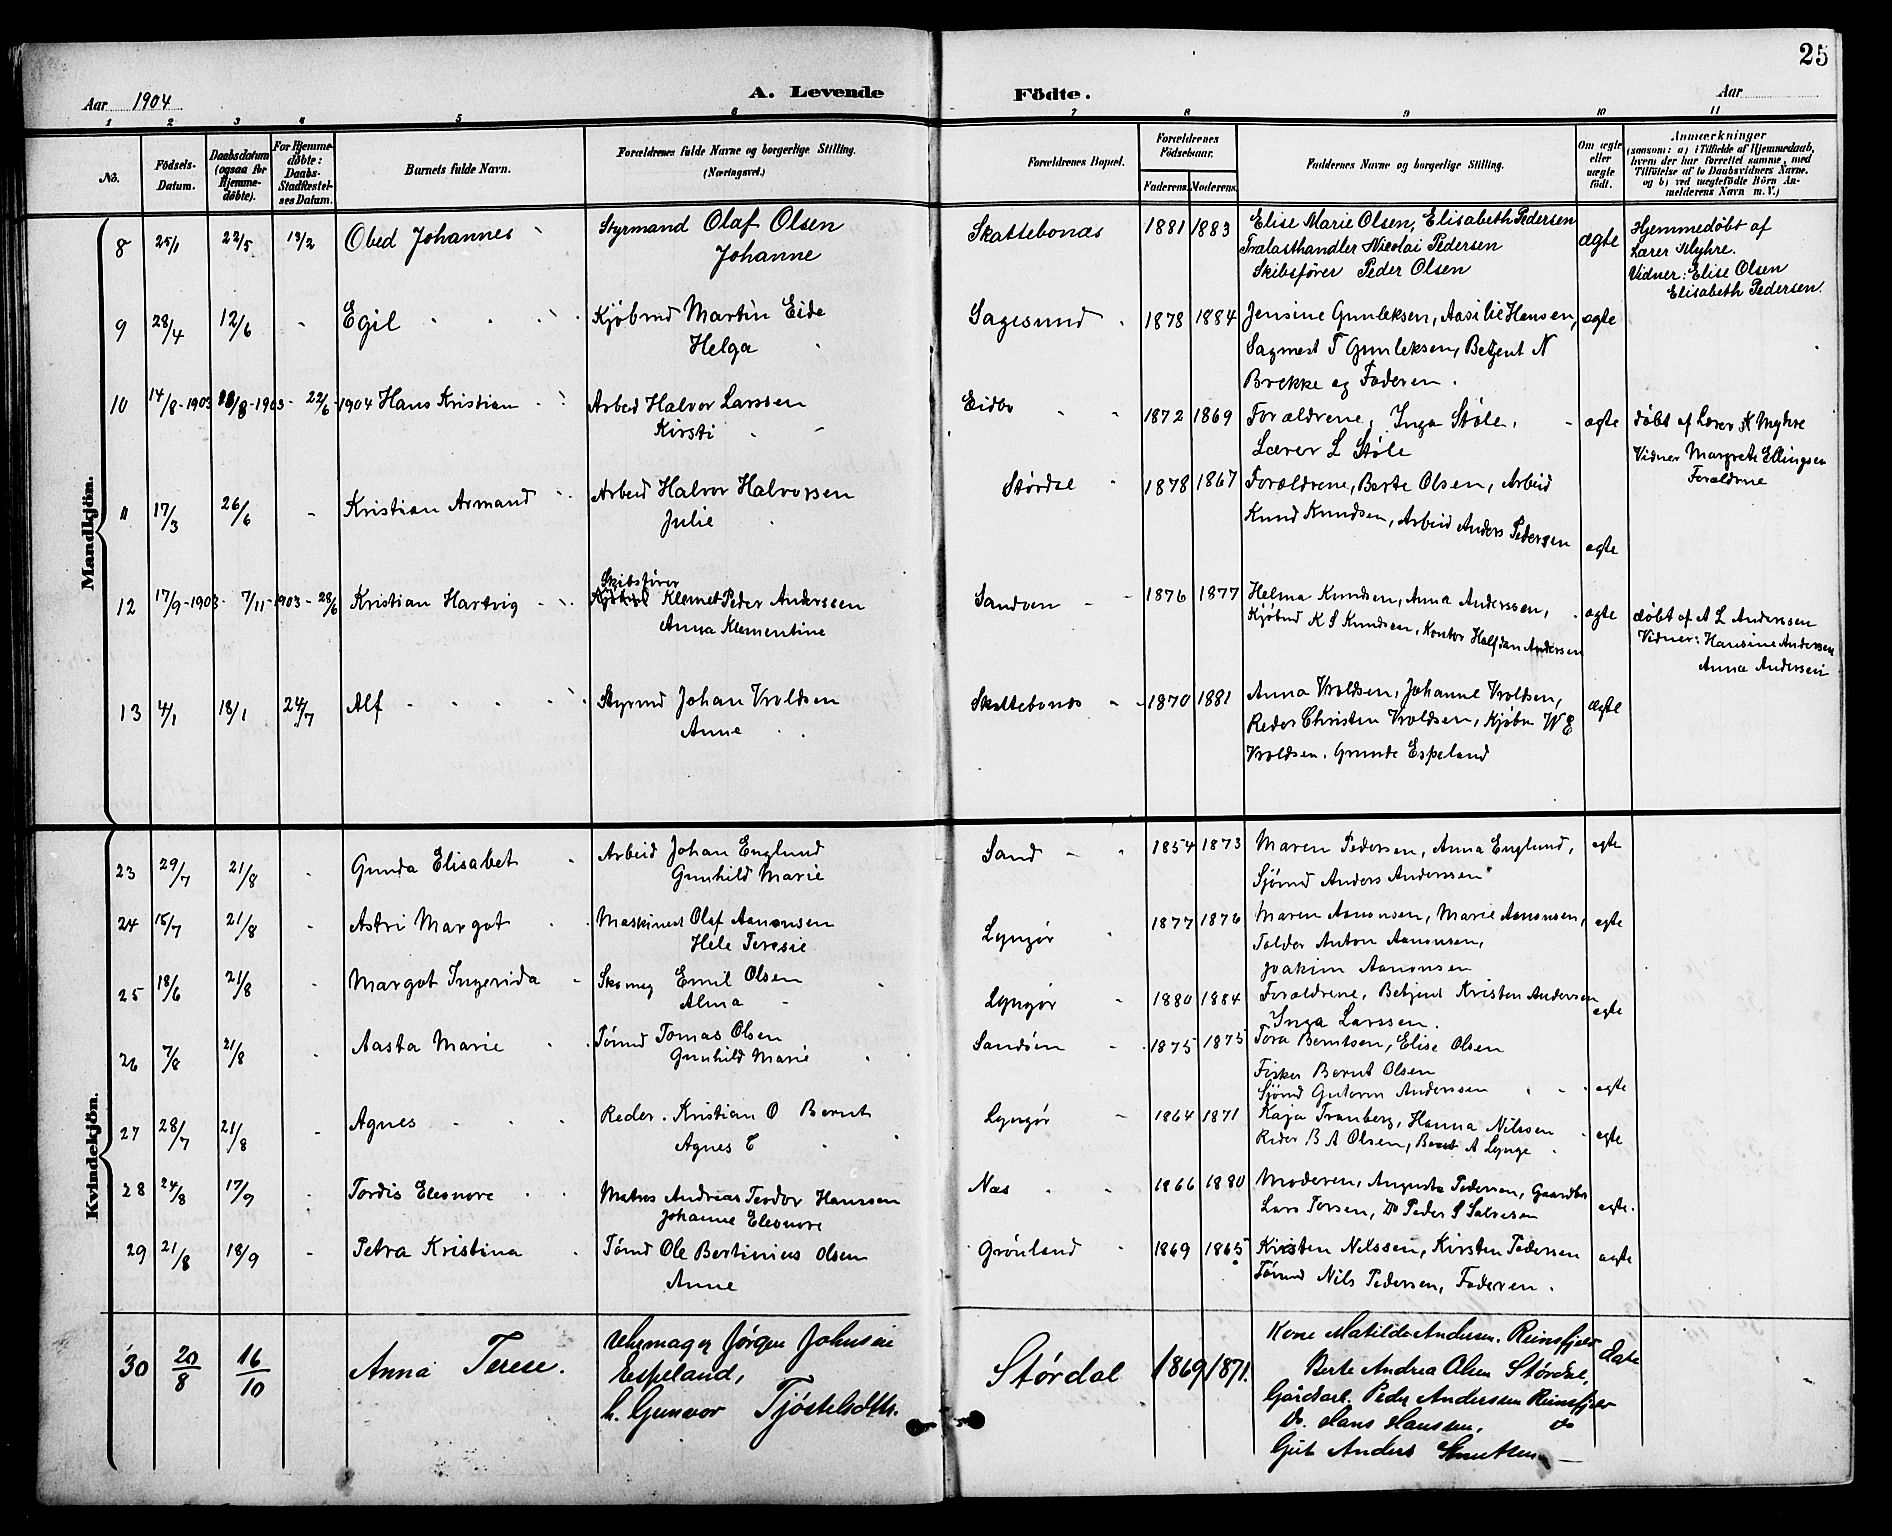 25
Aar 1904
A. Levende
Födte.
Aar
1 2 3 4 5 6 7 8 9 10 11
No.
Födsels-Datum.
Daabsdatum (ogsaa for Hjemme-døbte).
For Hjemme-døbte: Daabs-Stadfæstel-ses Datum.
Barnets fulde Navn.
Forældrenes fulde Navne og borgerlige Stilling. (Næringsvei.)
Forældrenes Bopæl.
Forældrenes Födselsaar.
Faderens. Moderens.
Faddernes Navne og borgerlige Stilling.
Om ægte eller uægte født.
Anmærkninger
(saasom: a) i Tilfælde af Hjemmedaab,
hvem der har forrettet samme, med
Tilföielse af to Daabsvidners Navne,
og b) ved uægtefödte Börn An-
melderens Navn m. V.)
Mandkjön.
8 25/1 22/5 13/2 Obed Johannes Styrmand Olaf Olsen Skattebonæs 1881 1883 Elise Marie Olsen, Elisabeth Pedersen ægte Hjemmedøbt af
Johanne Tralasthandler Nicolai Pedersen Lærer Myhre.
Skibsfører Peder Olsen Vidner: Elise Olsen
Elisabeth Pedersen.
9 28/4 12/6 - Egil Kjøbmd Martin Eide Sagesund 1878 1884 Jensine Gunleksen, Aasilie Hansen, ægte
Helga Sagmest T Gunleksen, Betjent N
Brekke og Faderen.
10 14/8-1903 18/8-1903 - 22/6 1904 Hans Kristian Arbeid Halvor Larssen Eidbo 1872 1869 Forældrene, Inga Støle, ægte døbt af Lærer K Myhre
Kirsti Lærer L Støle Vidner Margrete Ellingsen
Forældrne
11 17/3 26/6 - Kristian Armand Arbeid Halvor Halvorsen Størdal 1878 1867 Forældrene, Berte Olsen, Arbeid
Julie Knud Knudsen, Arbeid Anders Pedersen ægte
12 17/9-1903 - 7/11-1903 - 28/6 Kristian Hartvig Skibsfører Klemet Peder Anderssen Sandøen 1876 1877 Helma Knudsen, Anna Anderssen, ægte døbt af A L Anderssen
Anna Klementine Kjøbmd K S Knudsen, Kontor Halfdan Andersen Vidner: Hansine Andersen
Anna Andersen
13 4/1 18/1 24/7 Alf Styrmd Johan Vroldsen Skattebonæs 1870 1881 Anna Vroldsen, Johanne Vroldsen, ægte
Anne Reder Christen Vroldsen, Kjøbm W E
Vroldsen. Grunde Espeland
Kvindekjön.
23 29/7 21/8 - Gunda Elisabet Arbeid Johan Englund Sand 1854 1873 Maren Pedersen, Anna Englund, ægte
Gunhild Marie Sjømd Anders Anderssen
24 15/7 21/8 - Astri Margot Maskinest Olaf Aanonsen Lyngør 1877 1876 Maren Aanonsen, Marie Aanonsen, ægte
Hele Teresie Tolder Anton Aanonsen,
Joakim Aanonsen
25 18/6 21/8 - Margot Ingerida Skomag Emil Olsen Lyngør 1880 1884 Forældrene, Betjent Kristen Andersen ægte
Alma Inga Larssen.
26 7/8 21/8 - Aasta Marie Tømd Tomas Olsen Sandøen 1875 1875 Tora Berntsen, Elise Olsen
Gunhild Marie Fisker Bernt Olsen
Sjømd Gutorm Anderssen ægte
27 28/7 21/8 - Agnes Reder. Kristian O Bernt Lyngør 1864 1871 Kaja Tranberg, Hanna Nilssen ægte
Agnes C Reder B A Olsen, Bernt A Lynge
28 24/8 17/9 - Tordis Eleonore Matros Andreas Teodor Hanssen Næs 1866 1880 Moderen, Augusta Pedersen, Gaardbr ægte.
Johanne Eleonore Lars Torsen, Do Peder S Salvesen
29 21/8 18/9 - Petra Kristina Tømd Ole Bertinius Olsen Grønland 1869 1865 Kirsten Nilssen, Kirsten Pedersen ægte
Anne Tømmd Nils Pedersen, Faderen.
30 20/8 16/10 Anna Terese. Uhrmager Jørgen Johnsen Størdal 1869 1871. Kone Matilde Andersen. Reinsfjeld
Espeland, Berte Andrea Olsen Størdal,
h. Gunvor Tjøstelsdtt. Gårdarb. Peder Andersen Reinsfjeld
Do. Hans Hanssen, do
Gut Anders Knutsen